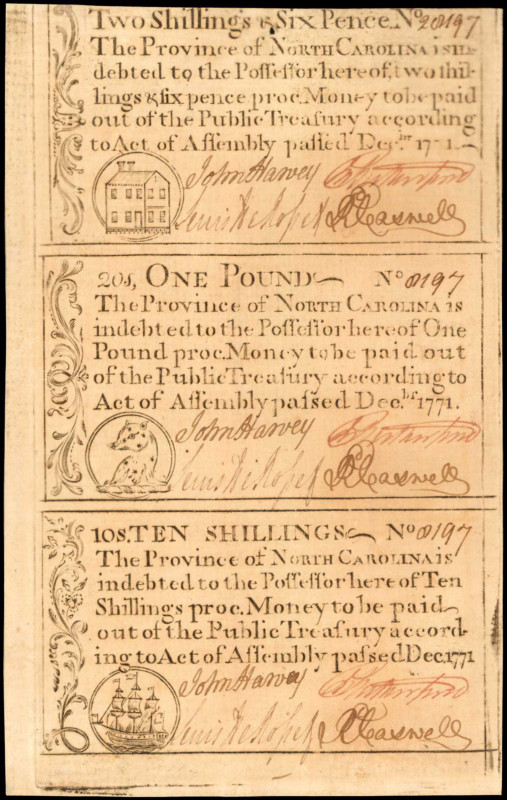 Two Shillings & Six Pence. No 28197
The Province of NORTH CAROLINA is in-
debted to the Possessor hereof, two shil-
lings & six pence proc. Money to be paid
out of the Public Treasury according
to Act of Assembly passed Dec.br 1771.
John Harvey
Lewis De Rosset RCaswell
20s, ONE POUND No 8197
The Province of NORTH CAROLINA is
indebted to the Possessor hereof One
Pound proc. Money to be paid out
of the Public Treasury according to
Act of Assembly passed Dec.br 1771.
John Harvey
Lewis De Rosset RCaswell
10s. TEN SHILLINGS No 8197
The Province of NORTH CAROLINA is
indebted to the Possessor hereof Ten
Shillings proc. Money to be paid
out of the Public Treasury accord-
ing to Act of Assembly passed Dec. 1771
John Harvey
Lewis De Rosset RCaswell